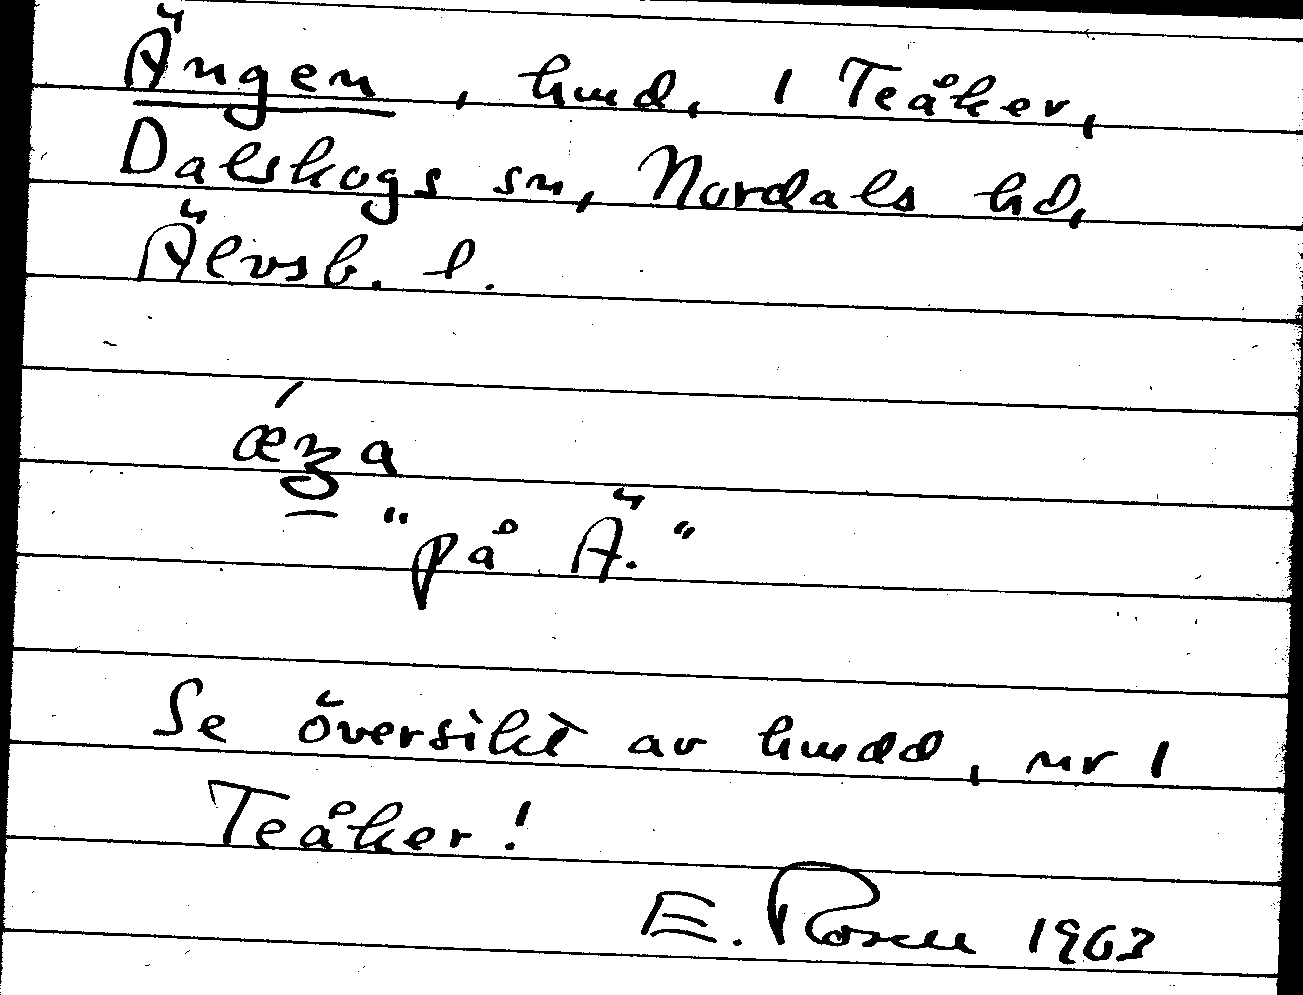 Ängen, hmd, 1 Teåker,
Dalskogs sn, Nordals hd,
Älvsb. l.
"på Ä."
Se översikt av hmdd, nr 1
Teåker!
E. Rosell 1963